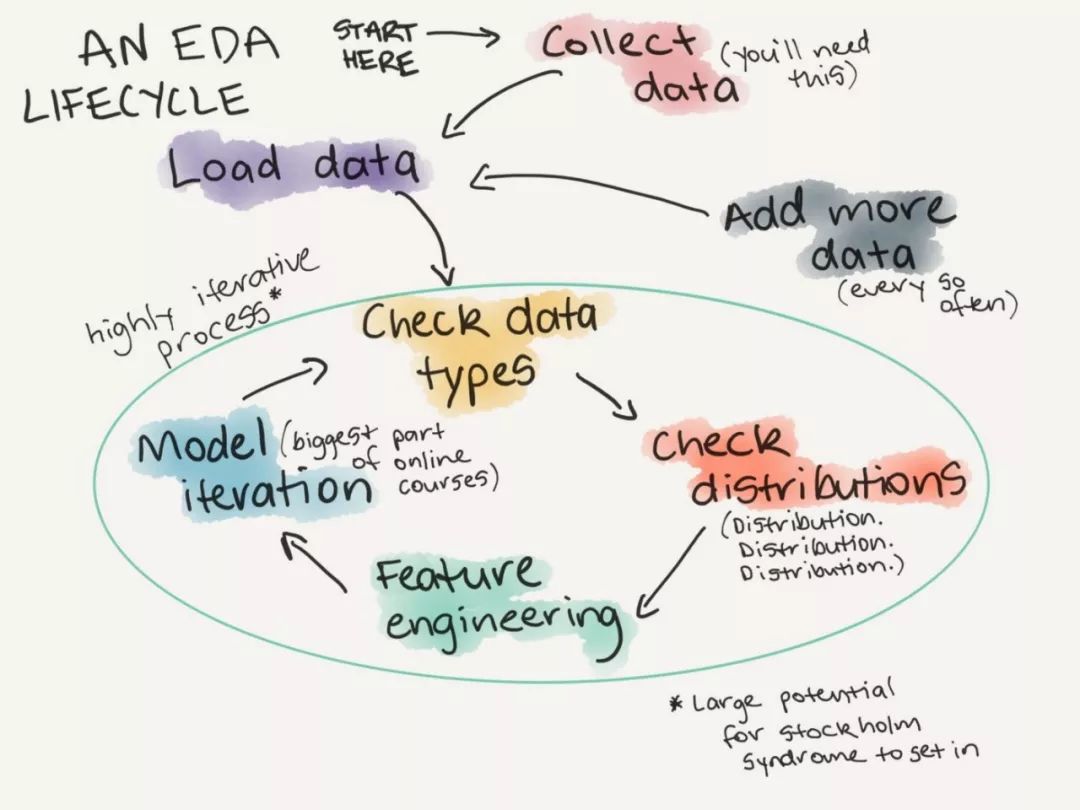 AN EDA
LIFECYCLE
START
HERE
Collect
data
(you'll need
this)
Load data
Add more
data
(every so
often)
highly iterative
process*
Check data
types
Model
iteration
(biggest part
of online
courses)
Check
distributions
(Distribution.
Distribution.
Distribution.)
Feature
engineering
* Large potential
for stockholm
syndrome to set in